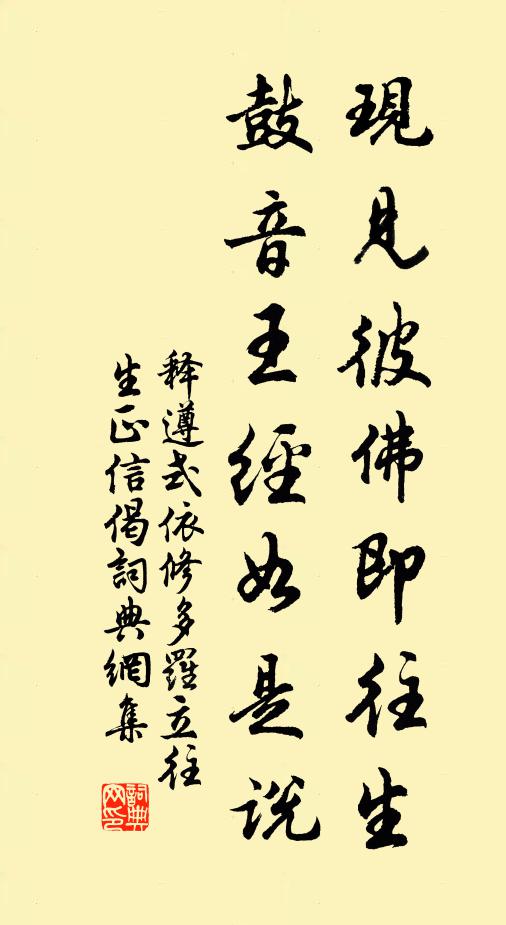 現見彼佛即往生
鼓音王經如是說
释遵式依修多羅立往
生正信偈詞典網集
詞典
网印